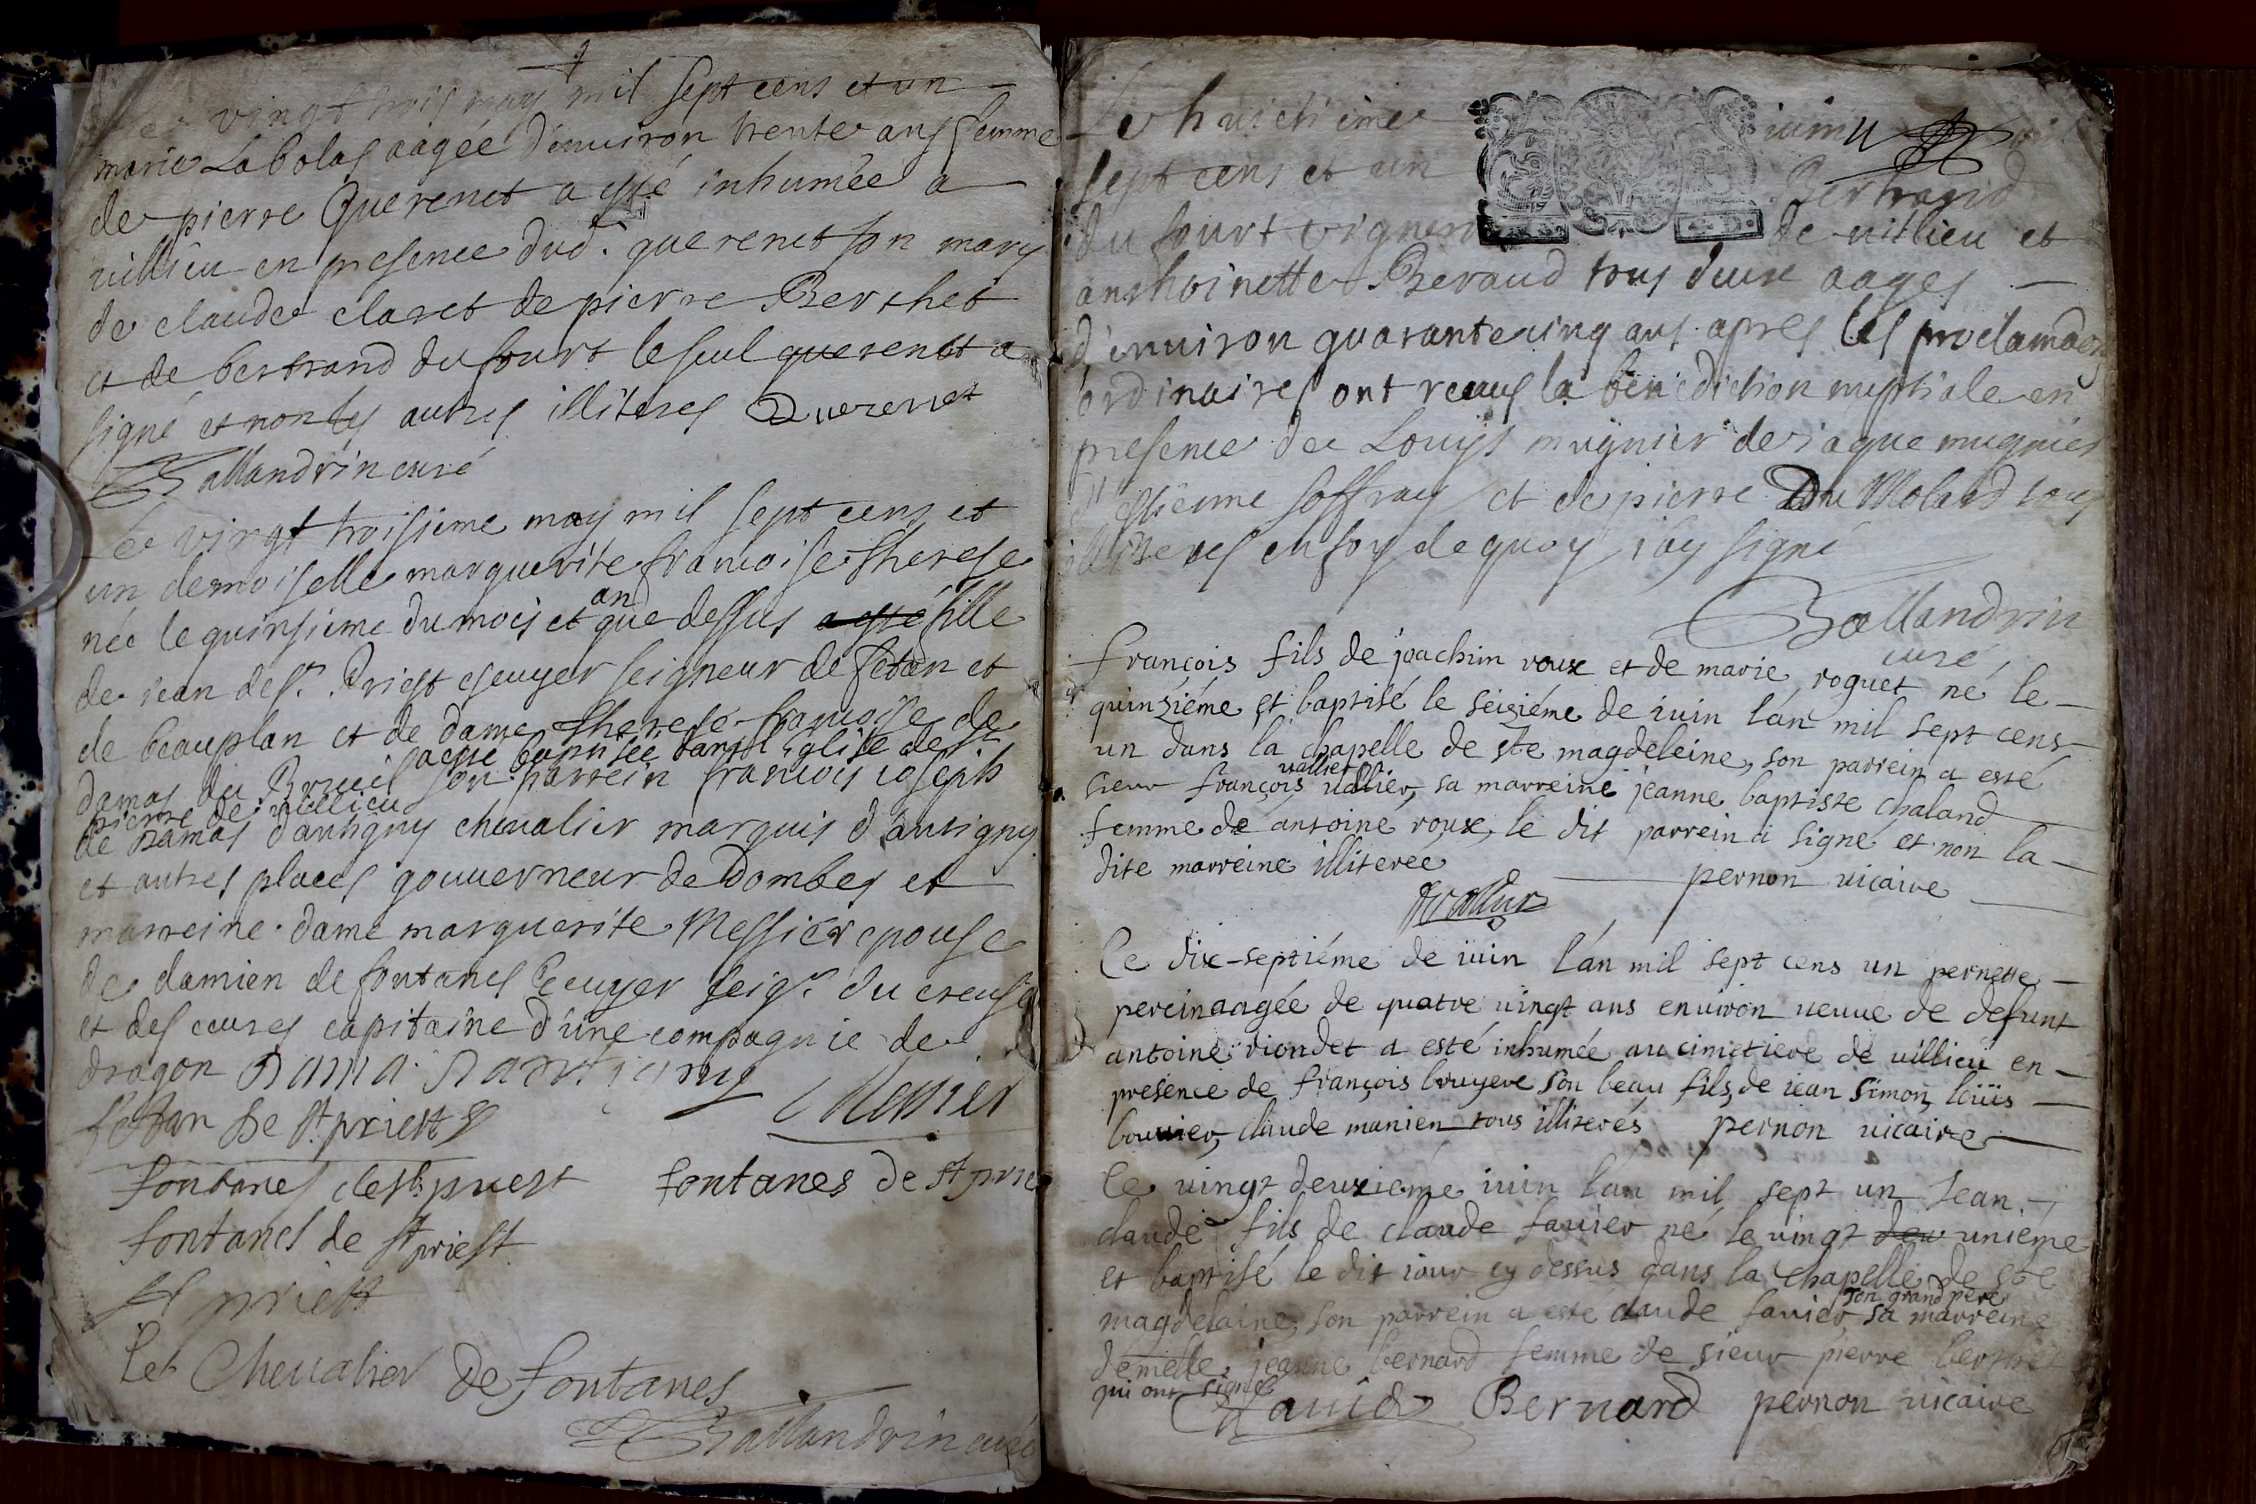 Le vingt trois may mil sept cens et un
marie Labolas aagée d'enuiron trente ans femme
de pierre Querenet a esté inhumée a
uillieu en presence dud. querenet son mary
de claude claret de pierre Berthet
et de bertrand du fourt le seul querenet a
signé et non les autres illiteres Querenet
Ballandrin curé
Le vingt troisieme may mil sept cens et
un demoiselle marguerite francoise therese
née le quinsieme du mois et an que dessus a esté fille
de iean de st. Priest escuyer seigneur de fetan et
de beauplan et de dame therese francoise de
damas du Brueil a esté baptisée dans l'Eglise de st
pierre de uillieu son parrein francois ioseph
de Damas d'antigny cheualier marquis d'antigny
et autres places gouuerneur de Dombes et
marreine dame marguerite Messier epouse
de damien de fontanes Ecuyer seigr. du creuse
et des cures capitaine d'une compagnie de
dragon Dama Dantigny
Messier
fetan De st priest
fontanes de st priest fontanes de st prie
fontanes de st priest
st priest
Le Cheualier De fontanes
Ballandrin curé
Le huictieme iuin mil
sept cens et un Bertrand
du fourt vigneron de uillieu et
anthoinette Beraud tous deux aages
d'enuiron quarante cinq ans apres les proclamaõns
ordinaires ont receus la benediction nuptiale en
presence de Louys mugnier de iaque mugnier
d'estienne soffray et de pierre Du Molard tous
illiteres en foy de quoy i'ay signé
Ballandrin
curé
françois fils de joachim roux et de marie roguet né le
quinziéme et baptisé le seiziéme de iuin l'an mil sept cens
un dans la chapelle de ste magdeleine, son parrein a esté
sieur françois uallier, sa marreine jeanne baptiste chaland
femme de antoine roux, le dit parrein a signé et non la
dite marreine illiteree pernon uicaire
Vallier
Ce dix-septiéme de iuin l'an mil sept cens un pernette
percin aagée de quatre uingt ans enuiron ueuue de defunt
antoine riondet a esté inhumée au cimetiere de uillieu en
presence de françois bruyere son beau fils, de iean simon, loüis
bouuier, claude manien tous illiterés pernon uicaire
Ce uingt deuxiéme iuin l'an mil sept un Jean
claude fils de claude fauier né le uingt deu uniéme
et baptisé le dit iour cy dessus dans la chapelle de ste
magdelaine, son parrein a esté claude fauier son grand pere sa marreine
demelle jeanne bernard femme de sieur pierre
qui ont signé
Bernard pernon uicaire